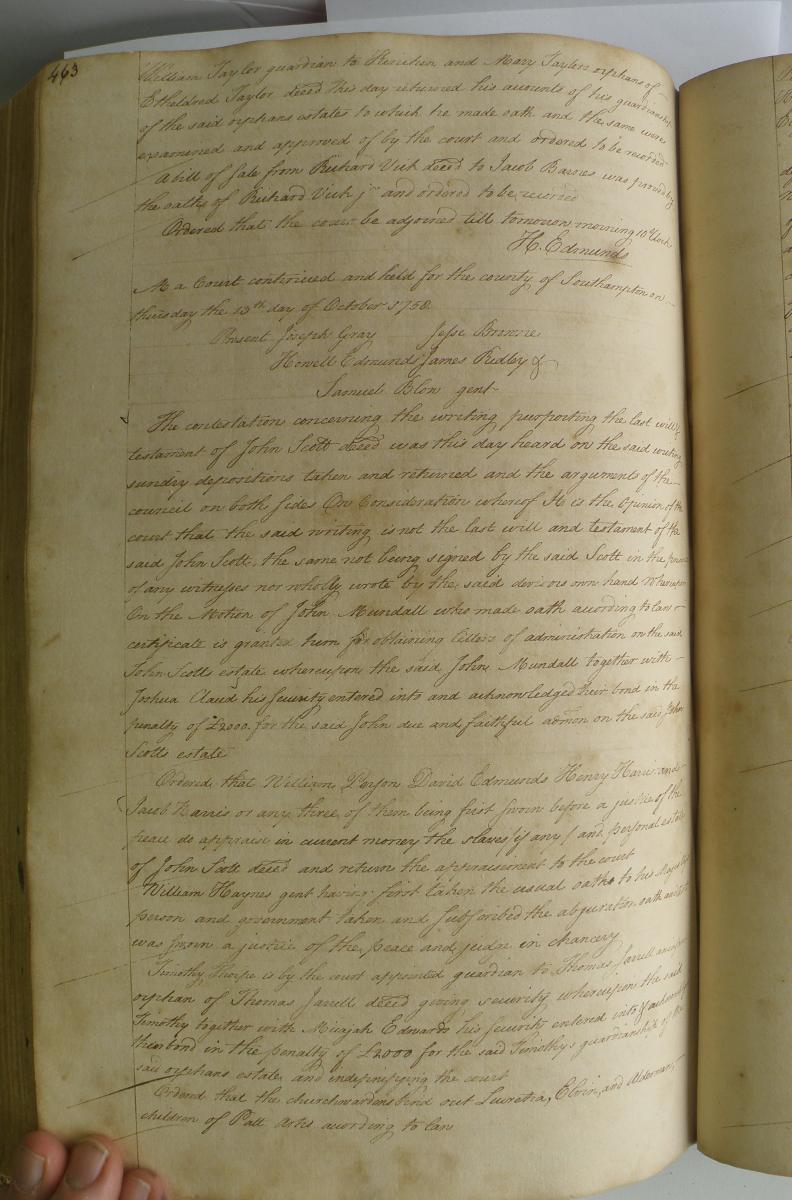 463
William Taylor guardian to Kinchen and Mary Taylor orphans of
Etheldred Taylor deced this day returned his accounts of his guardianship
of the said orphans estates to which he made oath and the same were
examined and approved of by the court and ordered to be recorded
A bill of Sale from Richard Vick deced to Jacob Barnes was proved by
the oaths of Richard Vick jr and ordered to be recorded
Ordered that the court be adjorned till tomorrow morning 10 oClock
H. Edmunds
At a Court continued and held for the county of Southampton on
thursday the 13th day of October 1758
Present Joseph Gray Jesse Browne
Howell Edmunds James Ridley &
Samuel Blow gent
The contestation concerning the writing purporting the last will &
testament of John Scott deced was this day heard on the said writing
sundry depositions taken and returned and the arguments of the
council on both sides On Consideration whereof It is the Opinion of the
court that the said writing is not the last will and testament of the
said John Scott, the same not being signed by the said Scott in the presence
of any witnesses nor wholly wrote by the said devisors own hand Whereupon
On the Motion of John Mundall who made oath according to law
certificate is granted him for obtaining letters of administration on the said
John Scotts estate whereupon the said John Mundall together with
Joshua Claud his Security entered into and acknowledged their bond in the
penalty of £2000 for the said John due and faithful admon on the said John
Scotts estate
Ordered that William Person David Edmunds Henry Harris and
Jacob Harris or any three of them being first sworn before a justice of the
peace do appraise in current money the slaves (if any) and personal estate
of John Scott deced and return the appraisement to the court
William Haynes gent having first taken the usual oaths to his Majestys
person and government taken and subscribed the abjuration oath and test
was sworn a justice of the peace and judge in chancery
Timothy Thorpe is by the court appointed guardian to Thomas Jarrell
orphan of Thomas Jarrell deced giving security whereupon the said
Timothy together with Micajah Edwards his security entered into & acknowledged
their bond in the penalty of £2000 for the said Timothys guardianship of the
said orphans estate and indemnifying the court
Ordered that the churchwardens bind out Lucretia, Elvin, and Alderman,
children of Patt Artis according to law